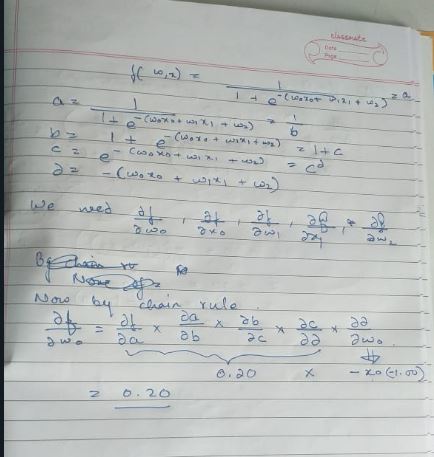 classmate
Date
Page
f(w,x) = 1 / (1 + e^-(w0x0 + w1x1 + w2)) = a
a = 1 / (1 + e^-(w0x0 + w1x1 + w2)) = 1/b
b = 1 + e^-(w0x0 + w1x1 + w2) = 1 + c
c = e^-(w0x0 + w1x1 + w2) = e^d
∂ = -(w0x0 + w1x1 + w2)
We need ∂f/∂w0, ∂f/∂x0, ∂f/∂w1, ∂f/∂x1, ∂f/∂w2
By chain
Now by chain rule.
∂f/∂w0 = ∂f/∂a × ∂a/∂b × ∂b/∂c × ∂c/∂∂ × ∂∂/∂w0
0.20 × -x0(-1.00)
= 0.20